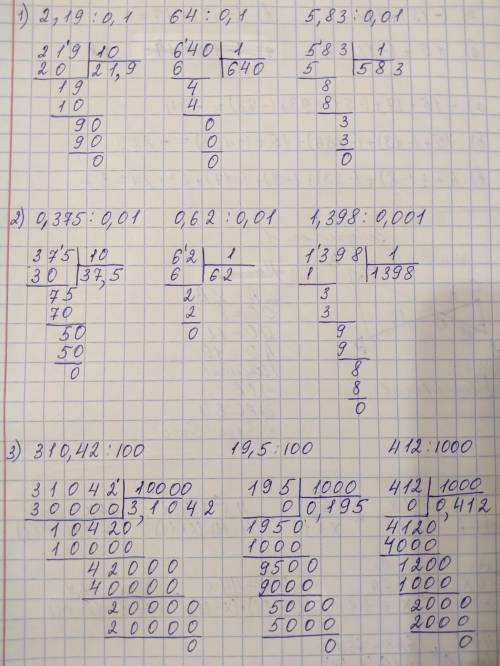 1) 2,19 : 0,1   64 : 0,1   5,83 : 0,01
219 | 10   640 | 1   583 | 1
20 | 21,9   6 | 640   5 | 583
19   4   8
10   4   8
90   0   3
90   0   3
0   0   0
2) 0,375 : 0,01   0,62 : 0,01   1,398 : 0,001
375 | 10   62 | 1   1398 | 1
30 | 37,5   6 | 62   1 | 1398
75   2   3
70   2   3
50   0   9
50   9
0   8
8
0
3) 310,42 : 100   19,5 : 100   412 : 1000
31042 | 10000   195 | 1000   412 | 1000
30000 | 3,1042   0 | 0,195   0 | 0,412
10420   1950   4120
10000   1000   4000
42000   9500   1200
40000   9000   1000
20000   5000   2000
20000   5000   2000
0   0   0